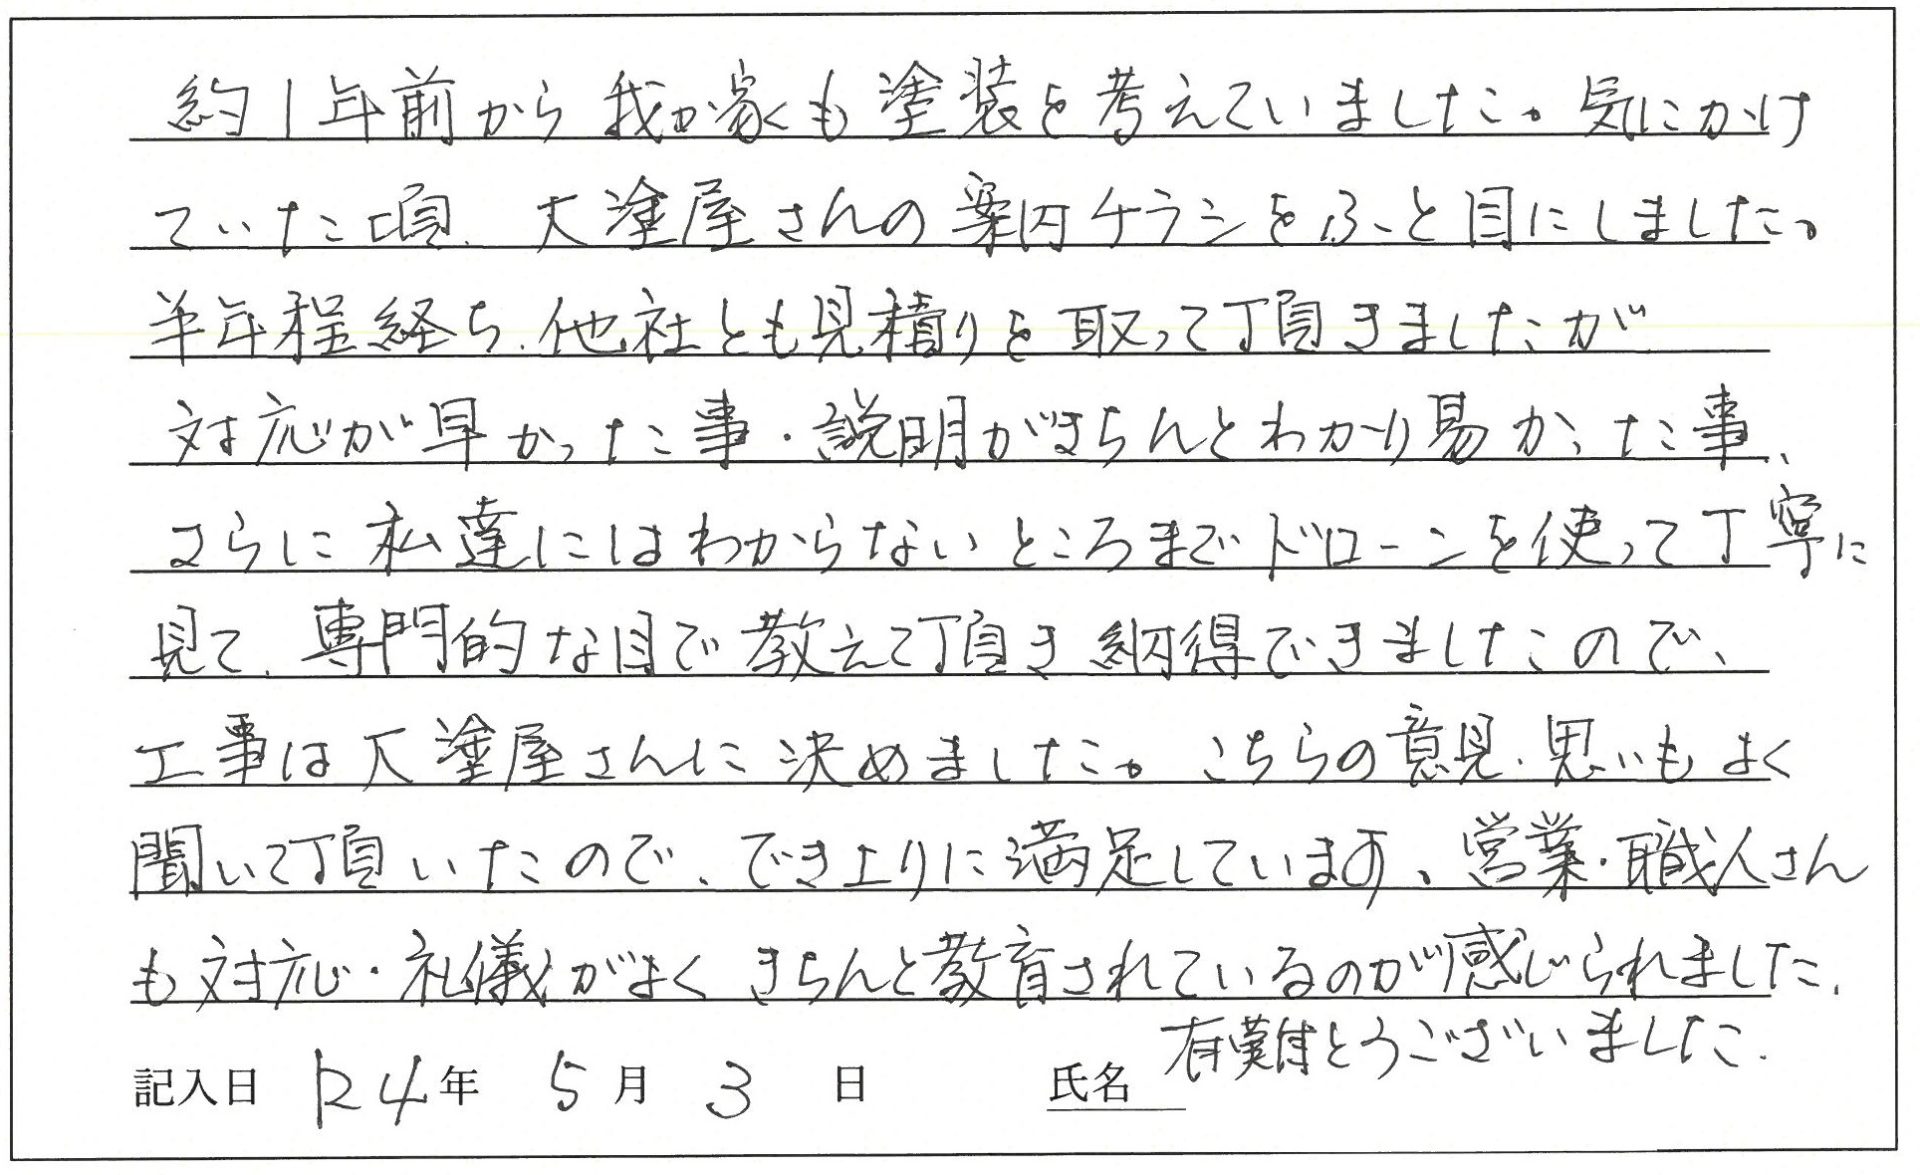 約1年前から我が家も塗装を考えていました。気にかけ
ていた頃、大塗屋さんの案内チラシをふと目にしました。
半年程経ち、他社とも見積りを取って頂きましたが
対応が早かった事・説明がきちんとわかり易かった事、
さらに私達にはわからないところまでドローンを使って丁寧に
見て、専門的な目で教えて頂き納得できましたので、
工事は大塗屋さんに決めました。こちらの意見・思いもよく
聞いて頂いたので、でき上りに満足しています。営業・職人さん
も対応・礼儀がよくきちんと教育されているのが感じられました。
有難とうございました。
記入日 R4年 5月 3日 氏名